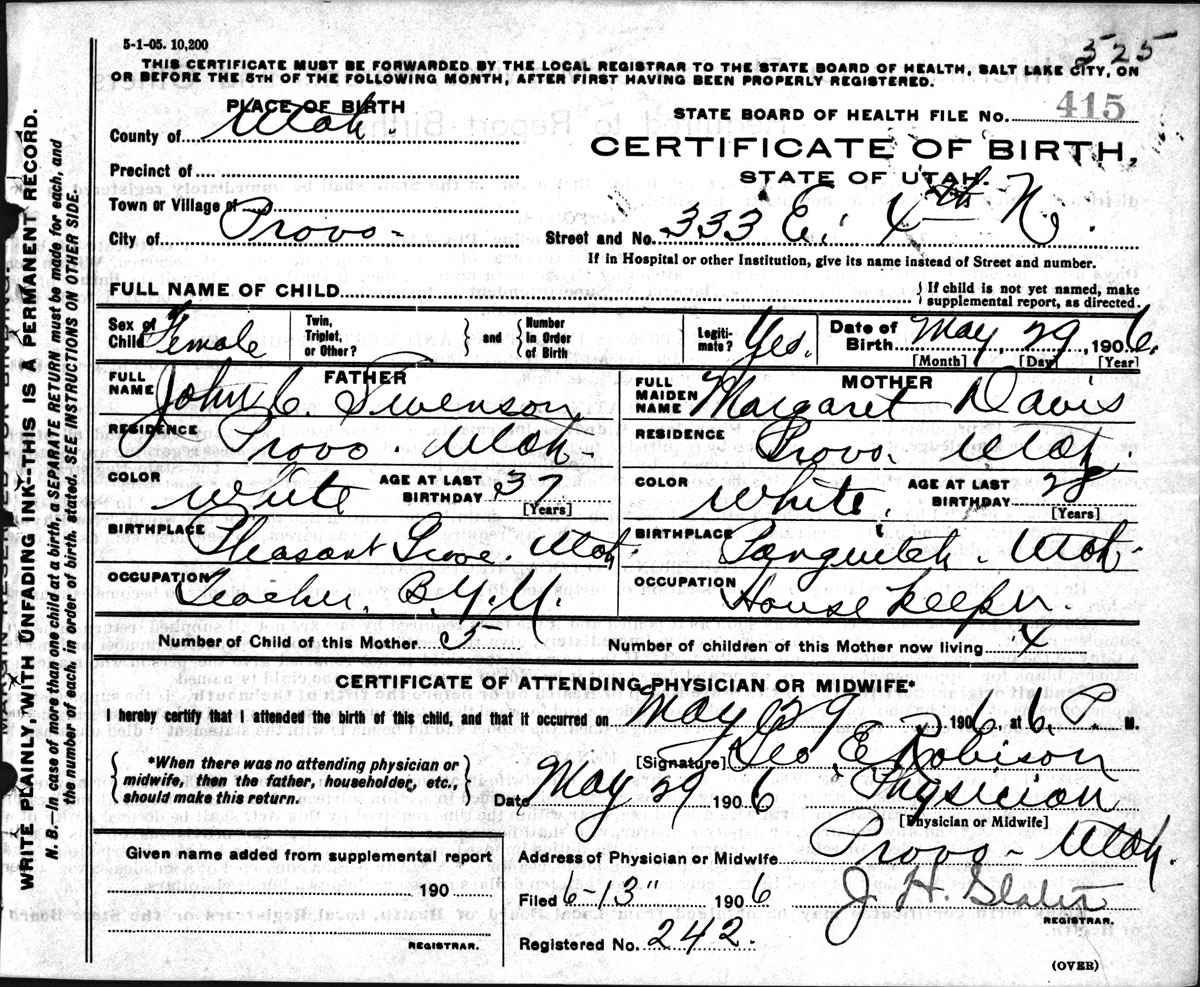 5-1-05. 10,200
525
THIS CERTIFICATE MUST BE FORWARDED BY THE LOCAL REGISTRAR TO THE STATE BOARD OF HEALTH, SALT LAKE CITY, ON
OR BEFORE THE 5TH OF THE FOLLOWING MONTH, AFTER FIRST HAVING BEEN PROPERLY REGISTERED.
PLACE OF BIRTH
County of Utah.
STATE BOARD OF HEALTH FILE No. 415
CERTIFICATE OF BIRTH,
STATE OF UTAH.
Precinct of
Town or Village of
City of Provo-
Street and No. 333 E. 4th N.
If in Hospital or other Institution, give its name instead of Street and number.
FULL NAME OF CHILD
{If child is not yet named, make
supplemental report, as directed.
Sex of Child Female
Twin, Triplet, or Other? } and { Number in Order of Birth
Legiti-mate? Yes.
Date of Birth May 29, 1906.
[Month] [Day] [Year]
FATHER
FULL NAME John C. Swenson
RESIDENCE Provo. Utah-
COLOR White AGE AT LAST BIRTHDAY 37
[Years]
BIRTHPLACE Pleasant Grove. Utah-
OCCUPATION Teacher, B.Y.U.
MOTHER
FULL MAIDEN NAME Margaret Davis
RESIDENCE Provo. Utah.
COLOR White. AGE AT LAST BIRTHDAY
[Years]
BIRTHPLACE Panguitch. Utah-
OCCUPATION House keeper
Number of Child of this Mother 5
Number of children of this Mother now living 4
CERTIFICATE OF ATTENDING PHYSICIAN OR MIDWIFE*
I hereby certify that I attended the birth of this child, and that it occurred on May 29 1906, at 6. P. M.
{*When there was no attending physician or
midwife, then the father, householder, etc.,
should make this return.}
[Signature] Geo. E. Robison
Date May 29 1906 Physician
[Physician or Midwife]
Given name added from supplemental report
190
REGISTRAR.
Address of Physician or Midwife Provo - Utah.
Filed 6-13" 1906 J. H. Slater
REGISTRAR.
Registered No. 242.
(OVER)
WRITE PLAINLY WITH UNFADING INK--THIS IS A PERMANENT RECORD.
N. B.—In case of more than one child at a birth, a SEPARATE RETURN must be made for each, and
the number of each, in order of birth, stated. SEE INSTRUCTIONS ON OTHER SIDE.